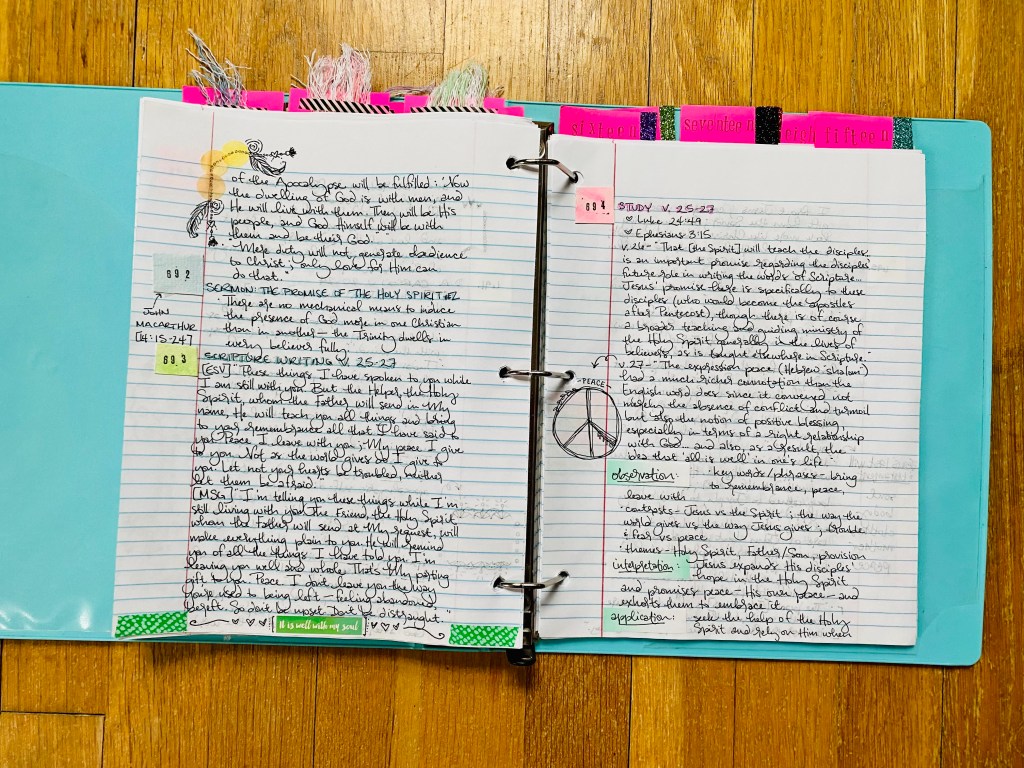 sixteen
seventeen
fifteen
of the Apocalypse will be fulfilled: 'Now
the dwelling of God is with men, and
He will live with them. They will be His
people, and God Himself will be with
them and be their God.'"
"Mere duty will not generate obedience
to Christ; only love for Him can
do that."
692
SERMON: THE PROMISE OF THE HOLY SPIRIT #2
JOHN
MACARTHUR
[14:15-24]
"There are no mechanical means to induce
the presence of God more in one Christian
than in another — the Trinity dwells in
every believer fully."
693
SCRIPTURE WRITING V. 25-27
[ESV] "These things I have spoken to you while
I am still with you. But the Helper, the Holy
Spirit, whom the Father will send in My
name, He will teach you all things and bring
to your remembrance all that I have said to
you. Peace I leave with you; My peace I give
to you. Not as the world gives do I give to
you. Let not your hearts be troubled, neither
let them be afraid."
[MSG] "I'm telling you these things while I'm
still living with you. The Friend, the Holy Spirit
whom the Father will send at My request, will
make everything plain to you. He will remind
you of all the things I have told you. I'm
leaving you well and whole. That's My parting
gift to you. Peace. I don't leave you the way
you're used to being left — feeling abandoned,
bereft. So don't be upset. Don't be distraught."
it is well with my soul
694
STUDY V. 25-27
Luke 24:49
Ephesians 3:15
v. 26 - "That [the Spirit] will teach the disciples
is an important promise regarding the disciples'
future role in writing the words of Scripture...
Jesus' promise here is specifically to these
disciples (who would become the apostles
after Pentecost), though there is of course
a broader teaching and guiding ministry of
the Holy Spirit generally in the lives of
believers, as is taught elsewhere in Scripture."
v. 27 - "The expression peace (Hebrew 'shalom')
had a much richer connotation than the
English word does since it conveyed not
merely the absence of conflict and turmoil
but also the notion of positive blessing,
especially in terms of a right relationship
with God... and also, as a result, the
idea that 'all is well' in one's life."
-PEACE-
observation:
· key words/phrases - bring
to remembrance, peace,
leave with
· contrasts - Jesus vs the Spirit; the way the
world gives vs the way Jesus gives; trouble
& fear vs peace
· themes - Holy Spirit, Father/Son, provision
interpretation: Jesus expands His disciples'
hope in the Holy Spirit
and promises peace - His own peace - and
exhorts them to embrace it
application: seek the help of the Holy
Spirit and rely on Him when